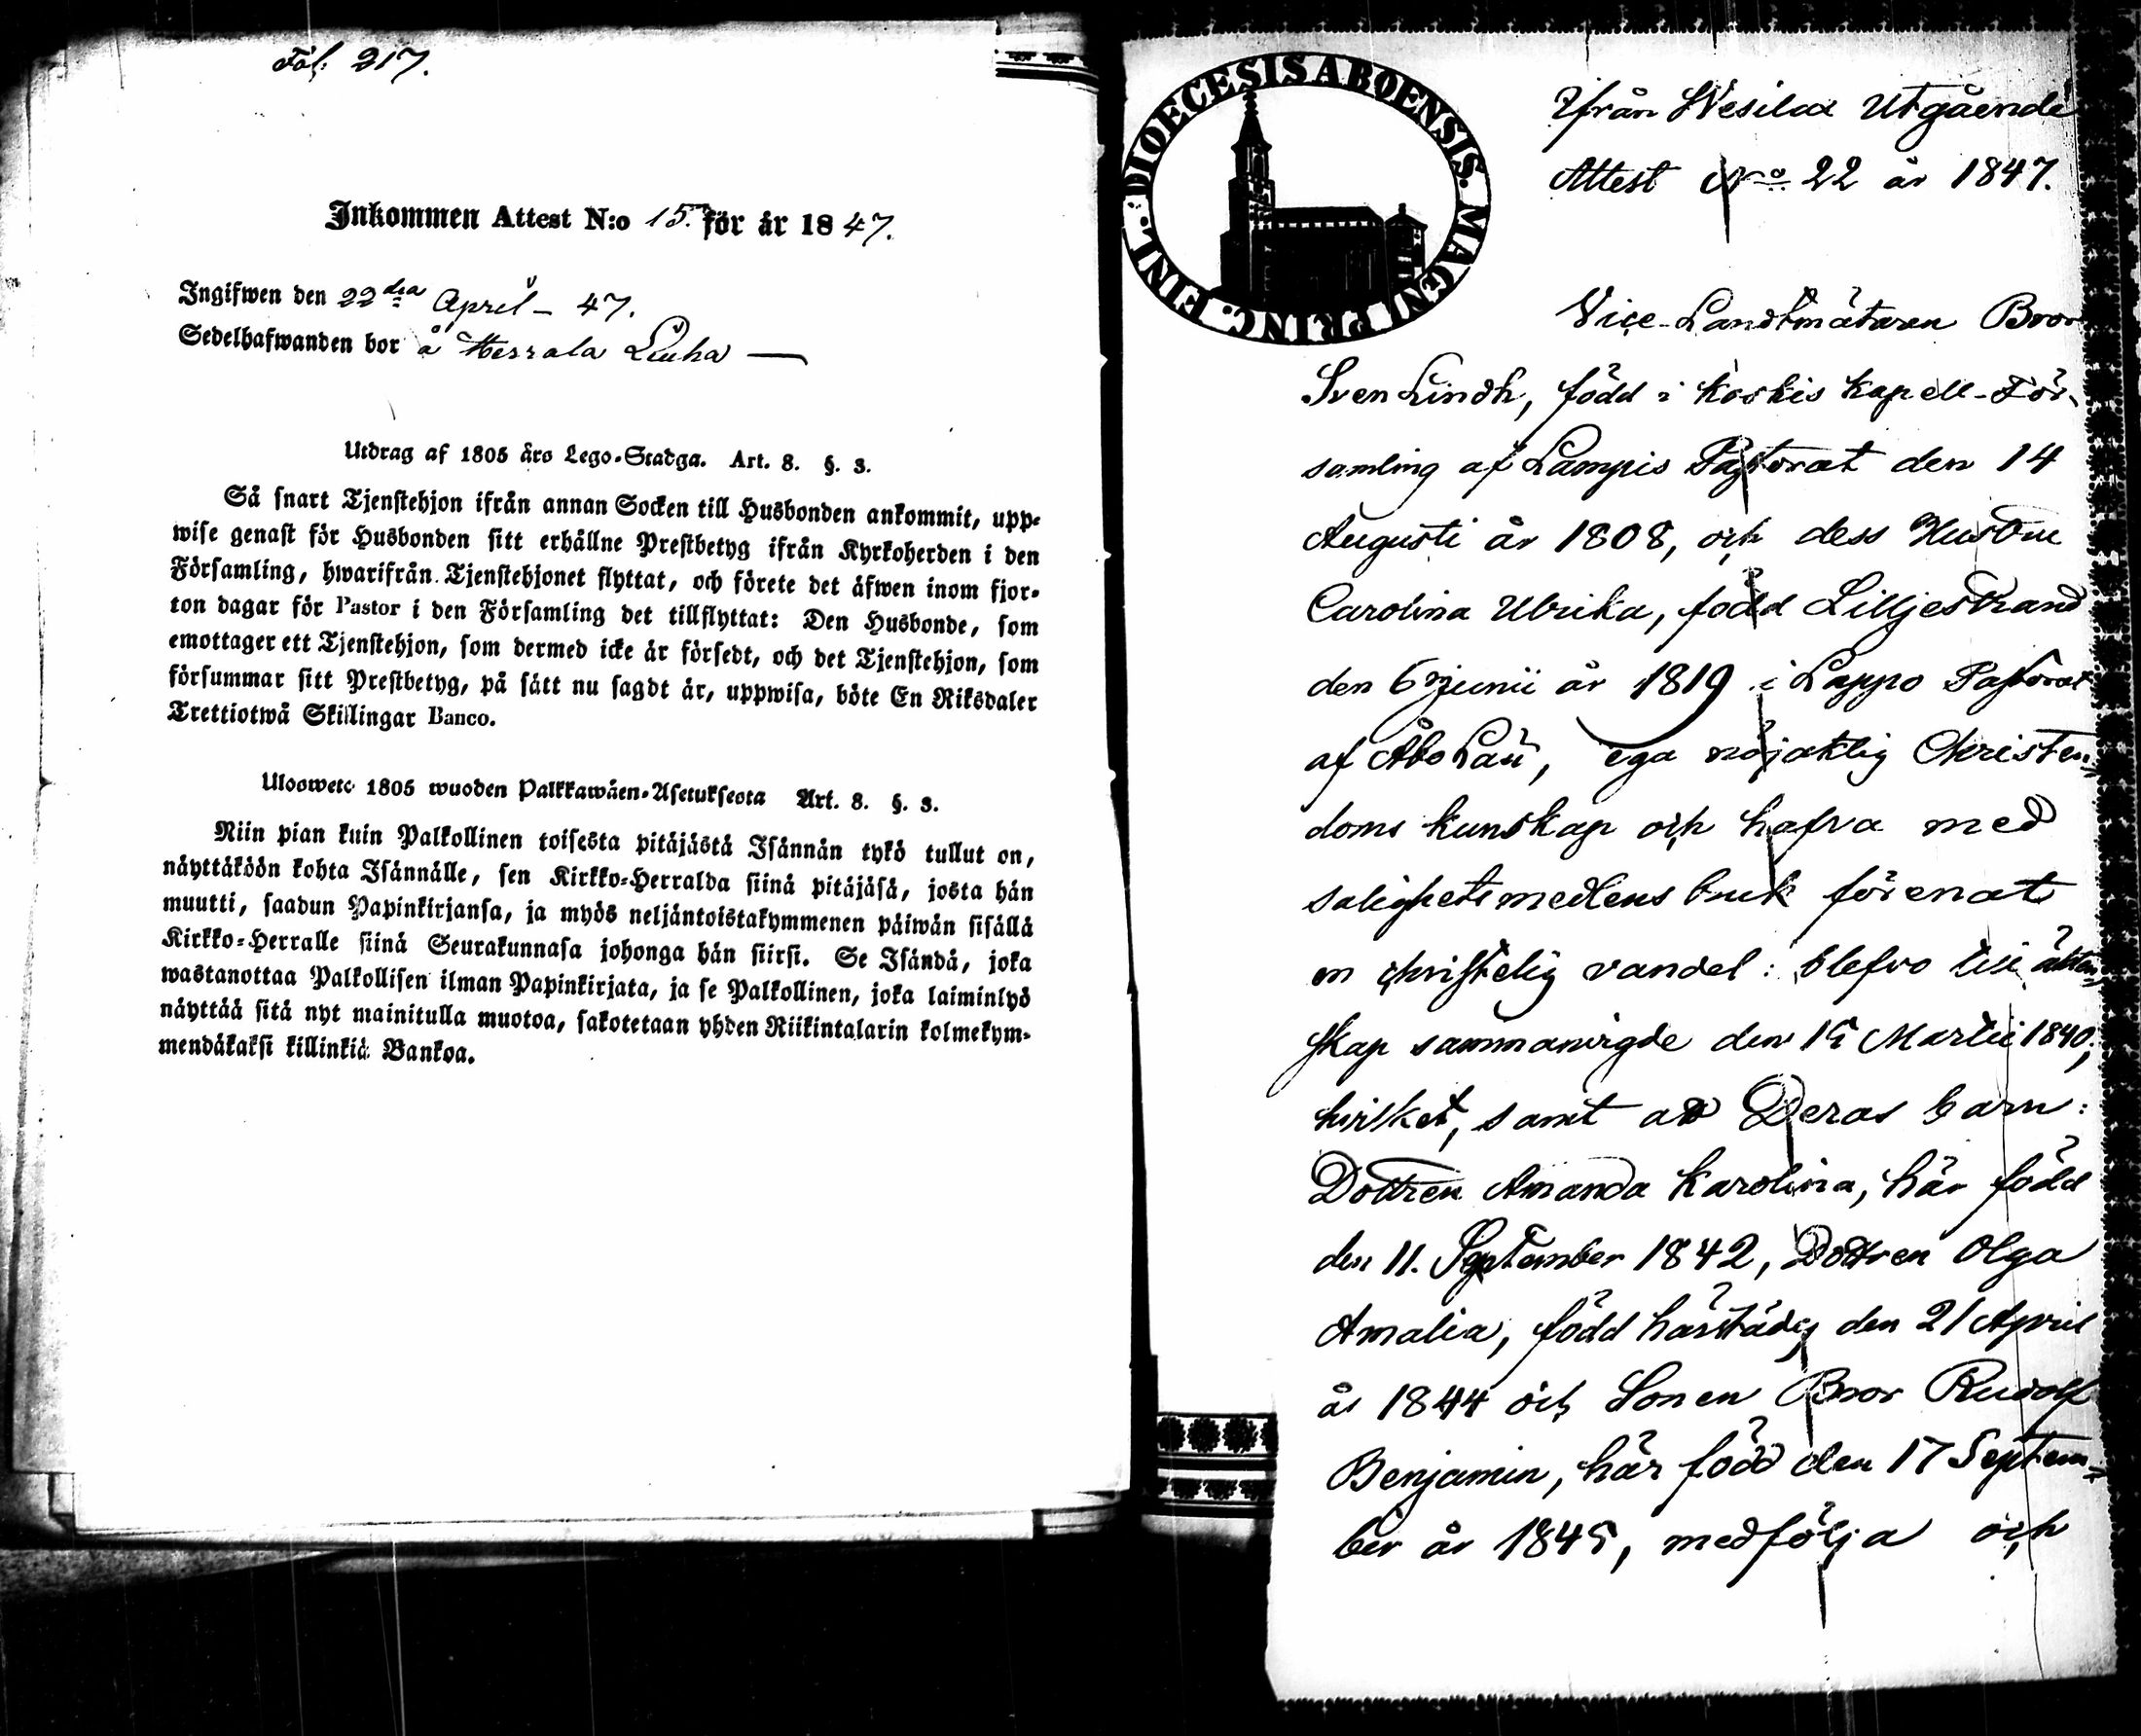 Fol. 217.
Inkommen Attest N:o 15. för år 1847.
Ingifwen den 22dra April - 47.
Sedelhafwanden bor å Herrala Liuha —
Utdrag af 1805 års Lego-Stadga. Art. 8. §. 3.
Så snart Tjenstehjon ifrån annan Socken till Husbonden ankommit, upp-
wise genast för Husbonden sitt erhållne Prestbetyg ifrån Kyrkoherden i den
Församling, hwarifrån Tjenstehjonet flyttat, och förete det äfwen inom fjor-
ton dagar för Pastor i den Församling det tillflyttat: Den Husbonde, som
emottager ett Tjenstehjon, som dermed icke är försedt, och det Tjenstehjon, som
försummar sitt Prestbetyg, på sätt nu sagdt är, uppwisa, böte En Riksdaler
Trettiotwå Skillingar Banco.
Uloswete 1805 wuoden Palkkawäen-Asetuksesta Art. 8. §. 3.
Niin pian kuin Palkollinen toisesta pitäjästä Isännän tykö tullut on,
näyttäköön kohta Isännälle, sen Kirkko-Herralda siinä pitäjäsä, josta hän
muutti, saadun Papinkirjansa, ja myös neljäntoistakymmenen päiwän sisällä
Kirkko-Herralle siinä Seurakunnasa johonga hän siirsi. Se Isändä, joka
wastanottaa Palkollisen ilman Papinkirjata, ja se Palkollinen, joka laiminlyö
näyttää sitä nyt mainitulla muotoa, sakotetaan yhden Riikintalarin kolmekym-
mendäkaksi killinkiä Bankoa.
DIOECESIS ABOENSIS. MAGNI PRINC. FINL.
Ifrån Wesilax Utgående
Attest No 22 år 1847.
Vice-Landtmätaren Bror
Sven Lindh, född i Koskis Kapell-För-
samling af Lampis Pastorat den 14
Augusti år 1808, och dess Hustru
Carolina Ulrika, född Lilljestrand
den 6 Junii år 1819 i Lappo Pastorat
af Åbo Län, ega nöjaktig Christen-
doms kunskap och hafva med
salighetsmedlens bruk förenat
en christelig vandel: blefvo till äkten-
skap sammanvigde den 15 Martii 1840;
hvilket, samt att Deras barn:
Dottren Amanda Karolina, här född
den 11. September 1842, Dottren Olga
Amalia, född härstädes den 21 April
år 1844 och Sonen Bror Rudolf
Benjamin, här född den 17 Septem-
ber år 1845, medfölja och